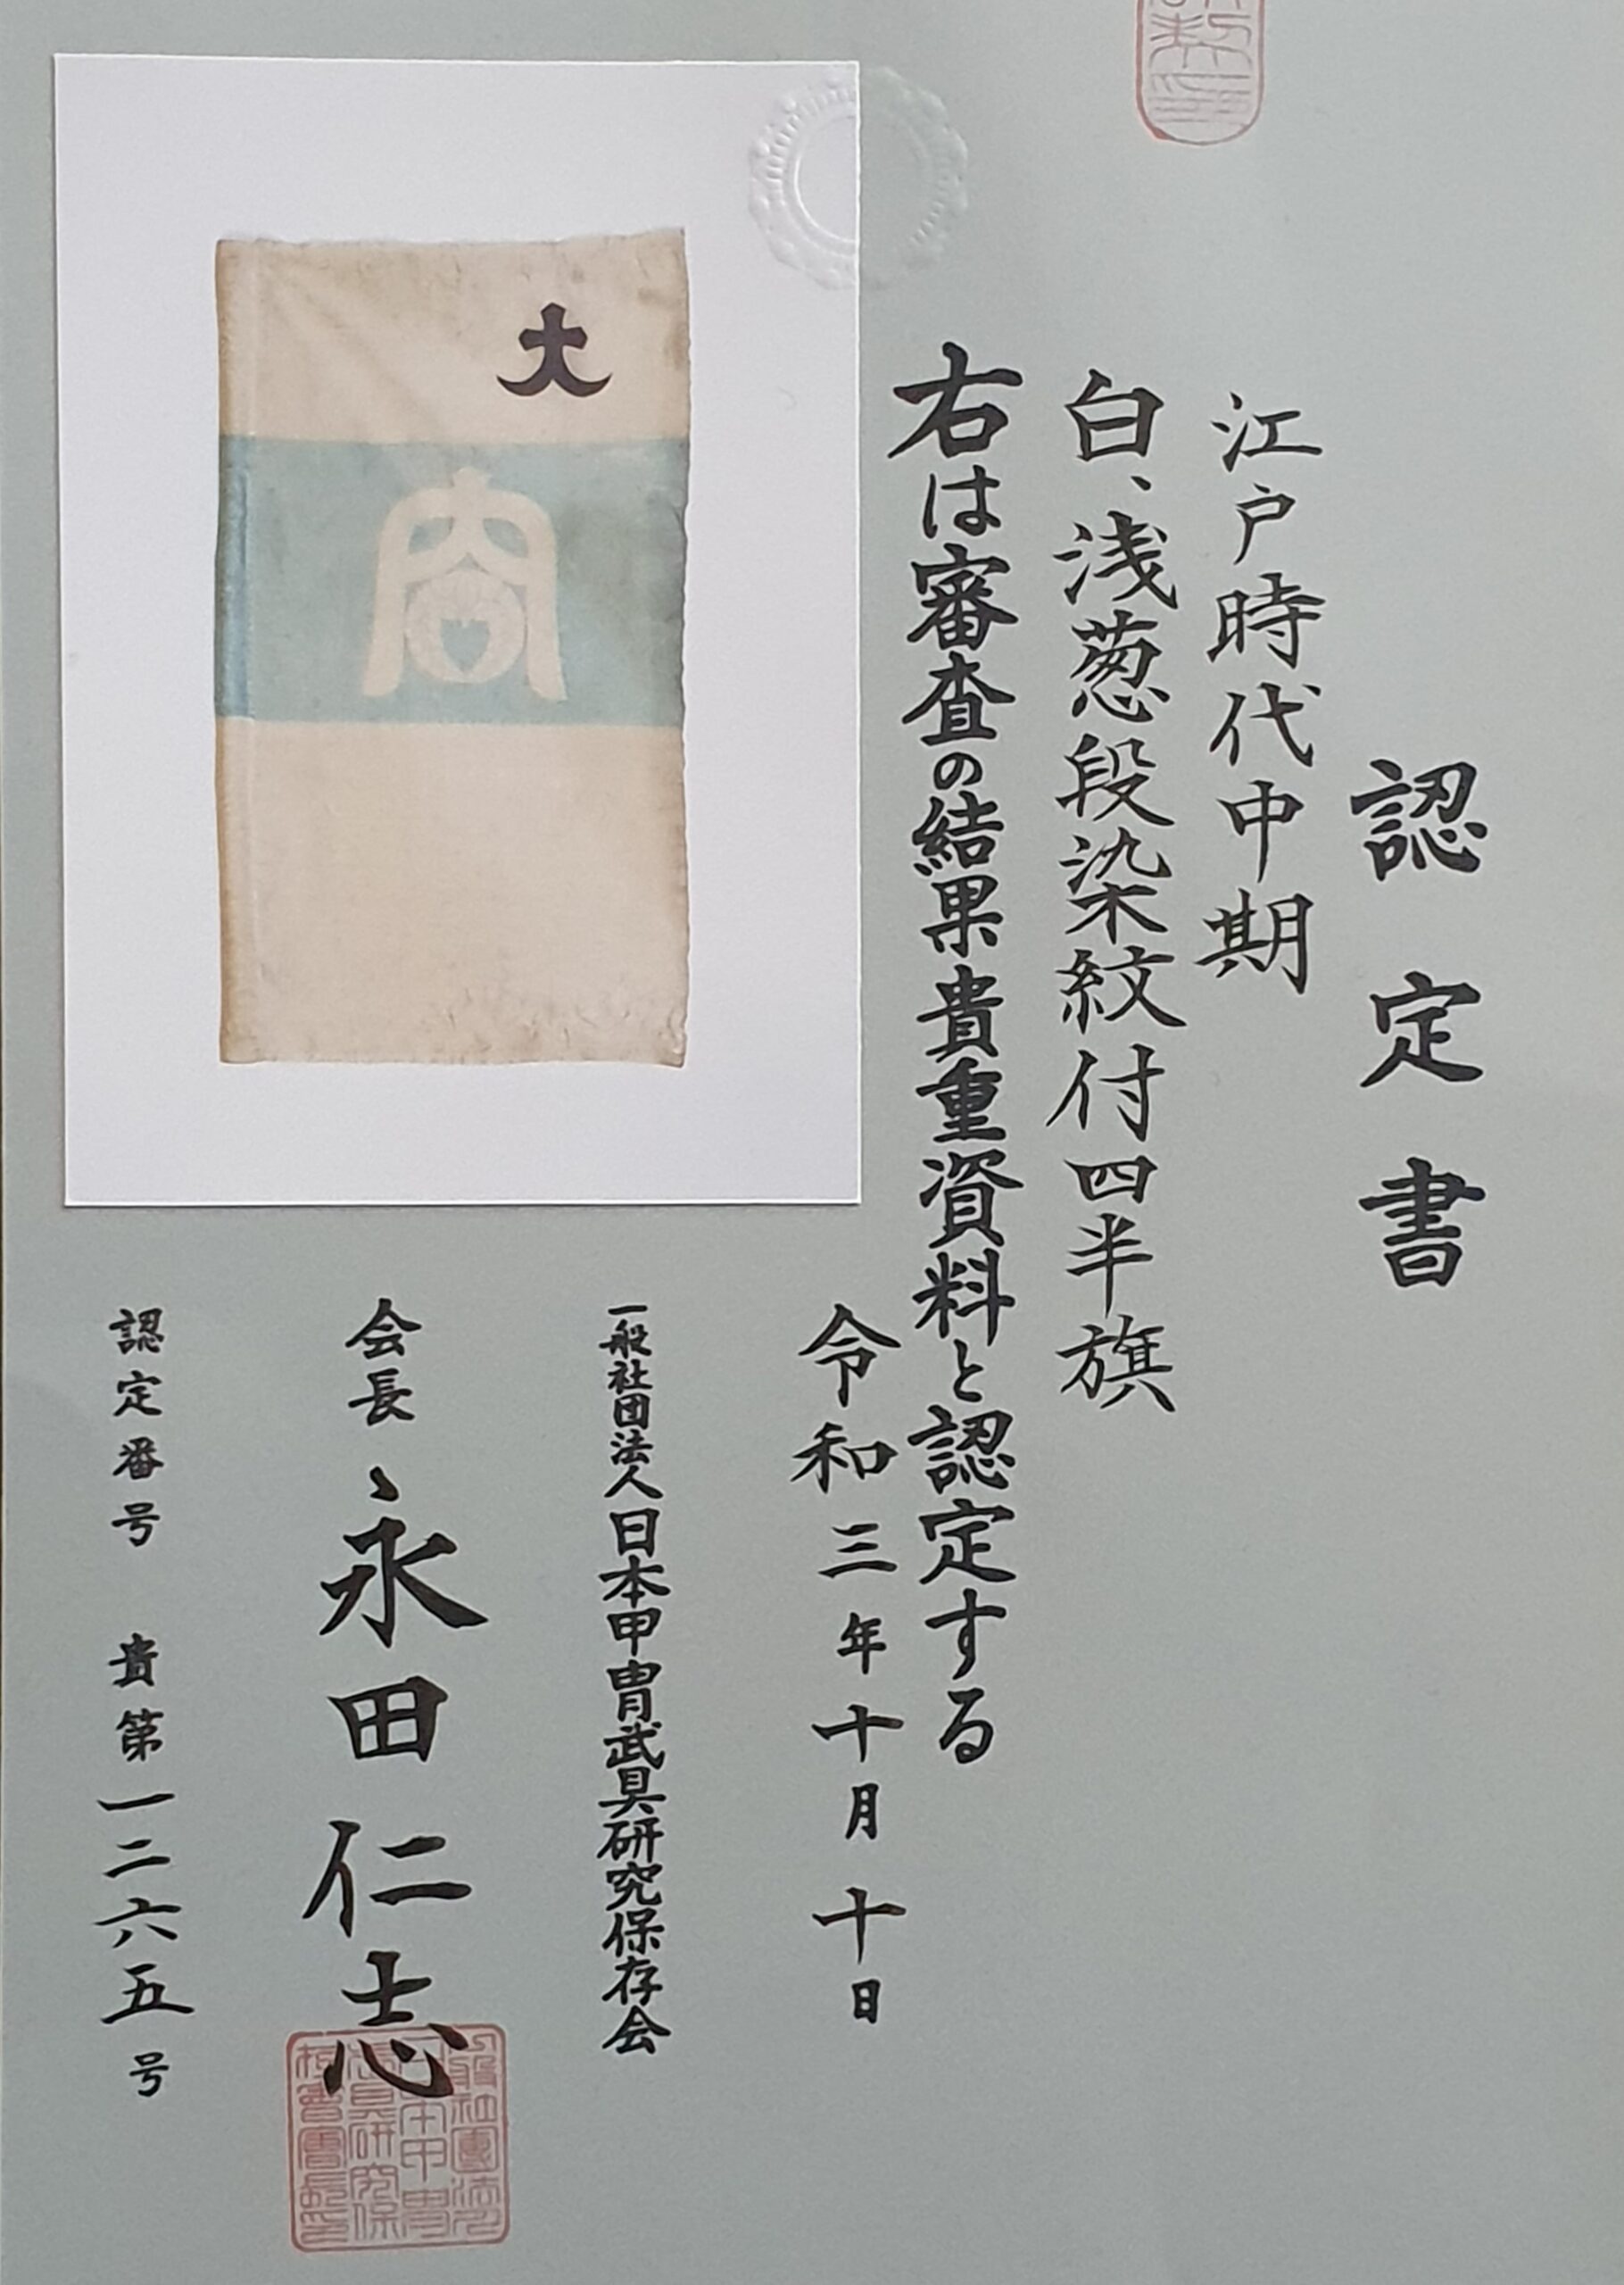 認定書
江戸時代中期
白、浅葱段染紋付四半旗
右は審査の結果貴重資料と認定する
令和三年十月十日
一般社団法人日本甲冑武具研究保存会
会長、永田仁志
認定番号 貴第一二六五号
大